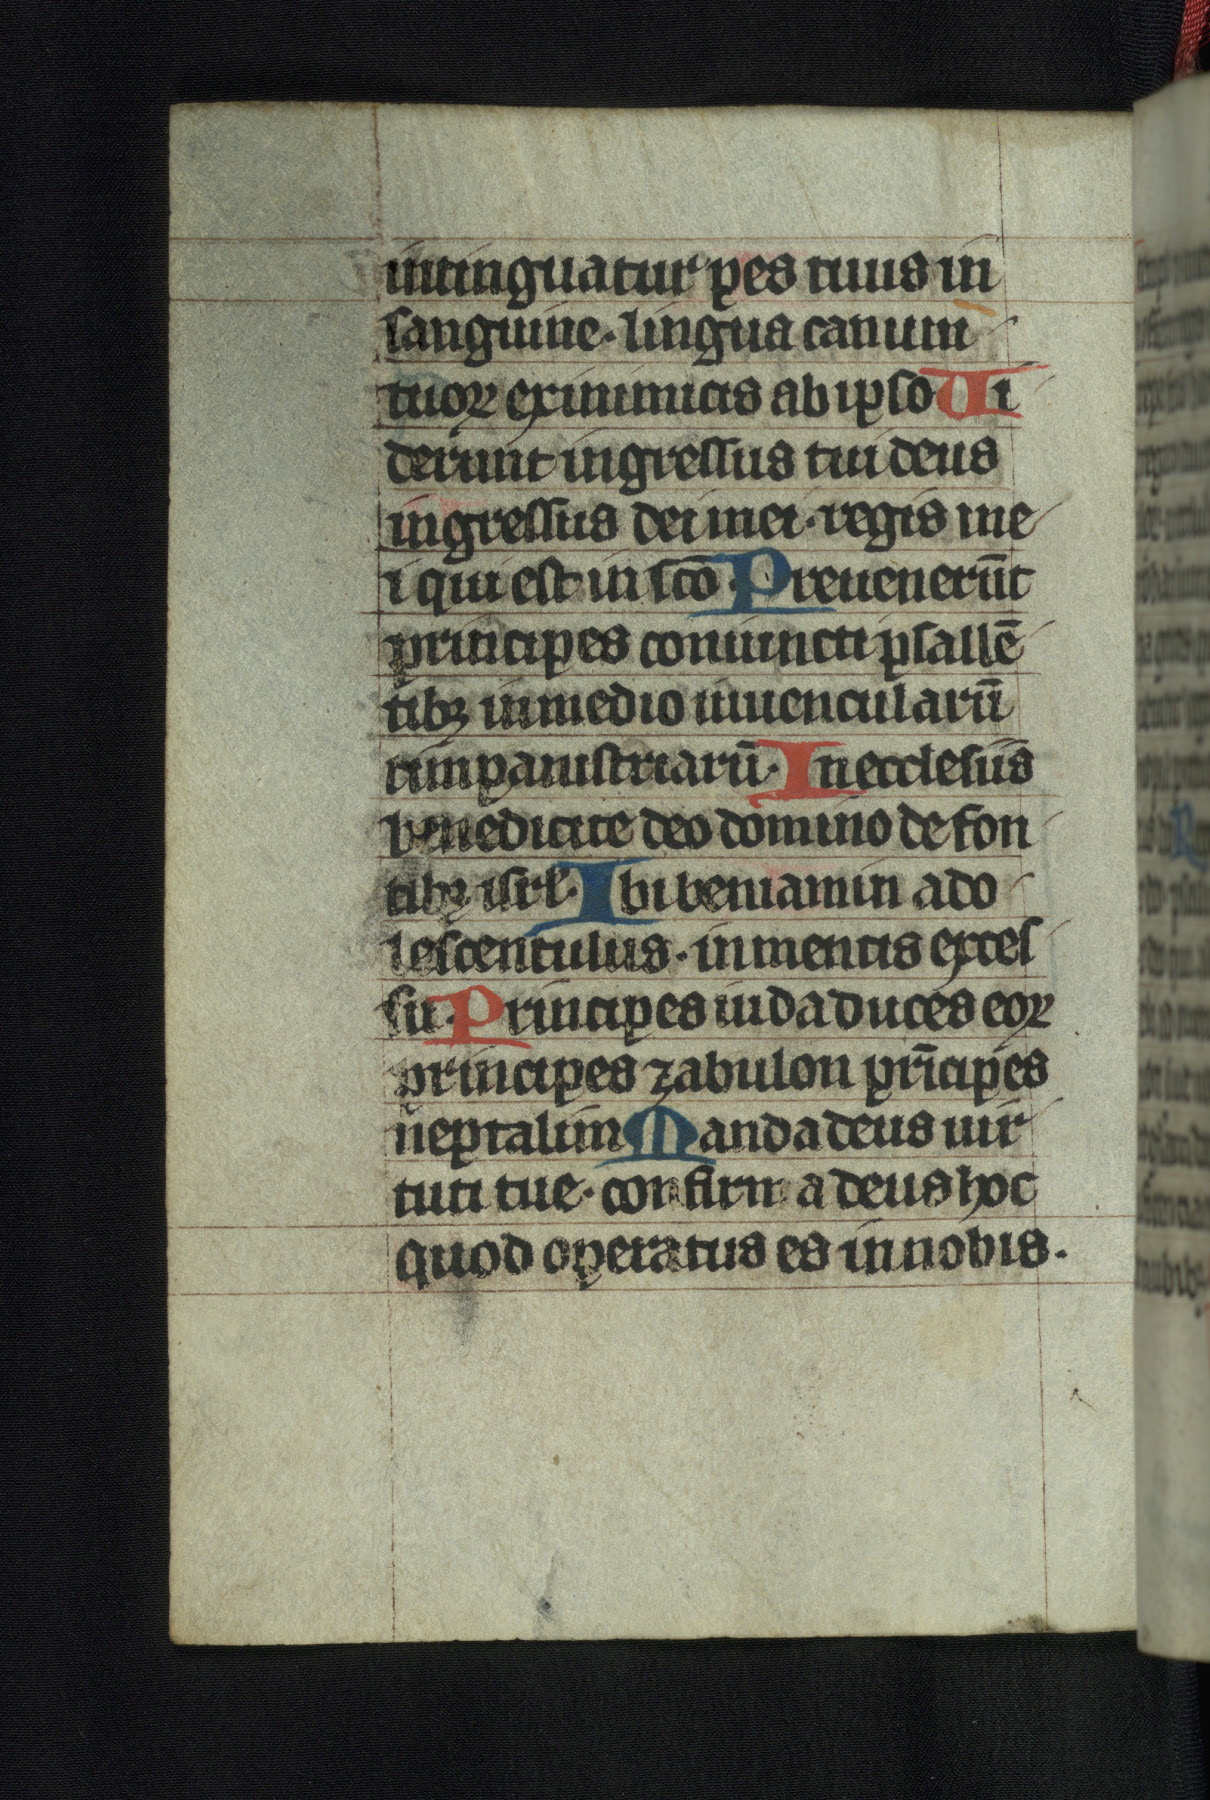 intinguatur pes tuus in
sanguine · lingua canum
tuoꝝ ex inimicis ab ipso Vi
derunt ingressus tui deus
ingressus dei mei · regis me
i qui est in sc̄o · Preuenerūt
principes coniuncti psallē
tibꝫ in medio iuuencularū
timpanistriarū · In ecclesiis
benedicite deo domino de fon
tibꝫ isrl̄ · Ibi beniamin ado
lescentulus · in mentis exces
su · Principes iuda duces eoꝝ
principes zabulon prīcipes
neptalim Manda deus uir
tuti tue · confirm a deus hoc
quod operatus es in nobis ·